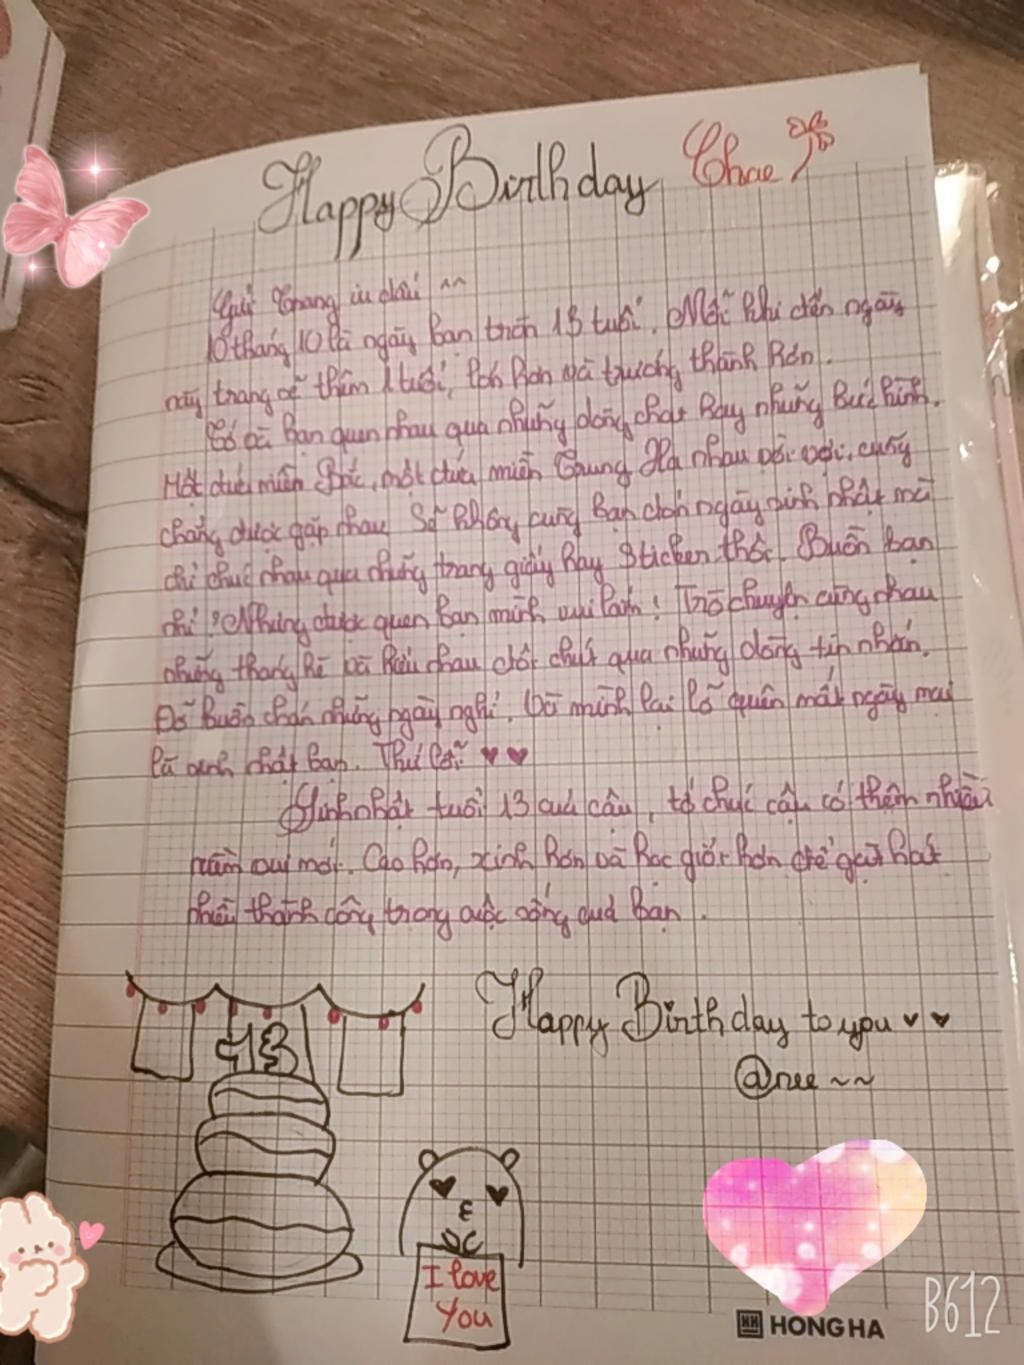 Happy Birthday Chae
Gửi Trang iu dấu ^^
10 tháng 10 là ngày bạn tròn 13 tuổi. Mỗi khi đến ngày
này trang sẽ thêm 1 tuổi, lớn hơn và trưởng thành hơn.
Tớ và bạn quen nhau qua những dòng chat hay những bức hình.
Một đứa miền Bắc, một đứa miền Trung Xa nhau vời vợi, cũng
chẳng được gặp nhau Sẽ không cùng bạn đón ngày sinh nhật mà
chỉ chúc nhau qua những trang giấy hay Sticker thôi. Buồn bạn
nhỉ? Nhưng được quen bạn mình vui lắm! Trò chuyện cùng nhau
những tháng hè và hiểu nhau đôi chút qua những dòng tin nhắn.
Đỡ buồn chán những ngày nghỉ. Và mình lại lỡ quên mất ngày mai
là sinh nhật bạn. Thứ lỗi ♥ ♥
Sinh nhật tuổi 13 của cậu, tớ chúc cậu có thêm nhiều
niềm vui mới. Cao hơn, xinh hơn và học giỏi hơn để gặt hái
nhiều thành công trong cuộc sống của bạn.
13
Happy Birthday to you ♥ ♥
@nee ~~
I love
You
HONG HA
B612